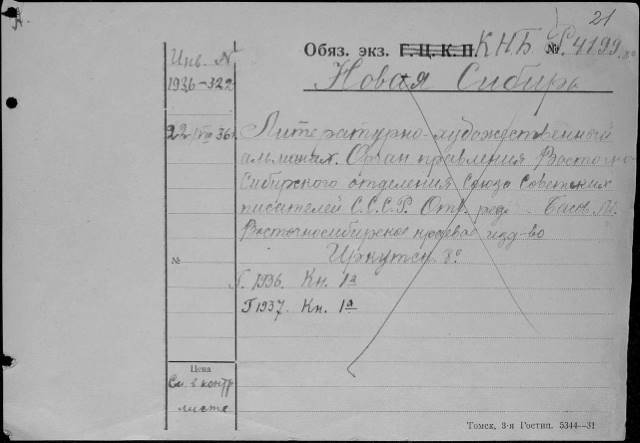 21
Обяз. экз. Г.Ц.К.П. КНБ № Р.4199
Инв. №
1936-322
Новая Сибирь
22/VIII 36г.
Литературно-художественный
альманах. Орган правления Восточно
Сибирского отделения Союза Советских
писателей С.С.С.Р. Отв. ред.
Восточносибирское краевое изд-во
Иркутск 8°
№
Г. 1936. Кн. 1я
Г 1937. Кн. 1я
Цена
См. в контр
листе
Томск, 3-я Гостип. 5344—31